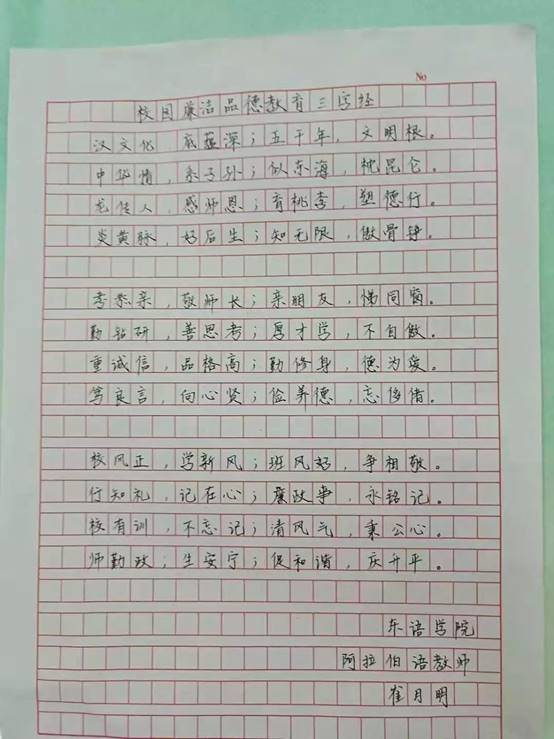 No
校园廉洁品德教育三字经
汉文化，底蕴深；五千年，文明根。
中华情，系子孙；似东海，枕昆仑。
龙传人，感师恩；育桃李，塑德行。
炎黄脉，好后生；知无限，傲骨铮。
孝忝亲，敬师长；亲朋友，惜同窗。
勤钻研，善思考；厚才学，不自傲。
重诚信，品格高；勤修身，德为宝。
笃良言，向心贤；俭养德，忘侈惰。
校风正，学新风；班风好，争相敬。
行知礼，记在心；廉政事，永铭记。
校有训，不忘记；清风气，秉公心。
师勤政；生安宁；促和谐，庆升平。
东语学院
阿拉伯语教师
崔月明